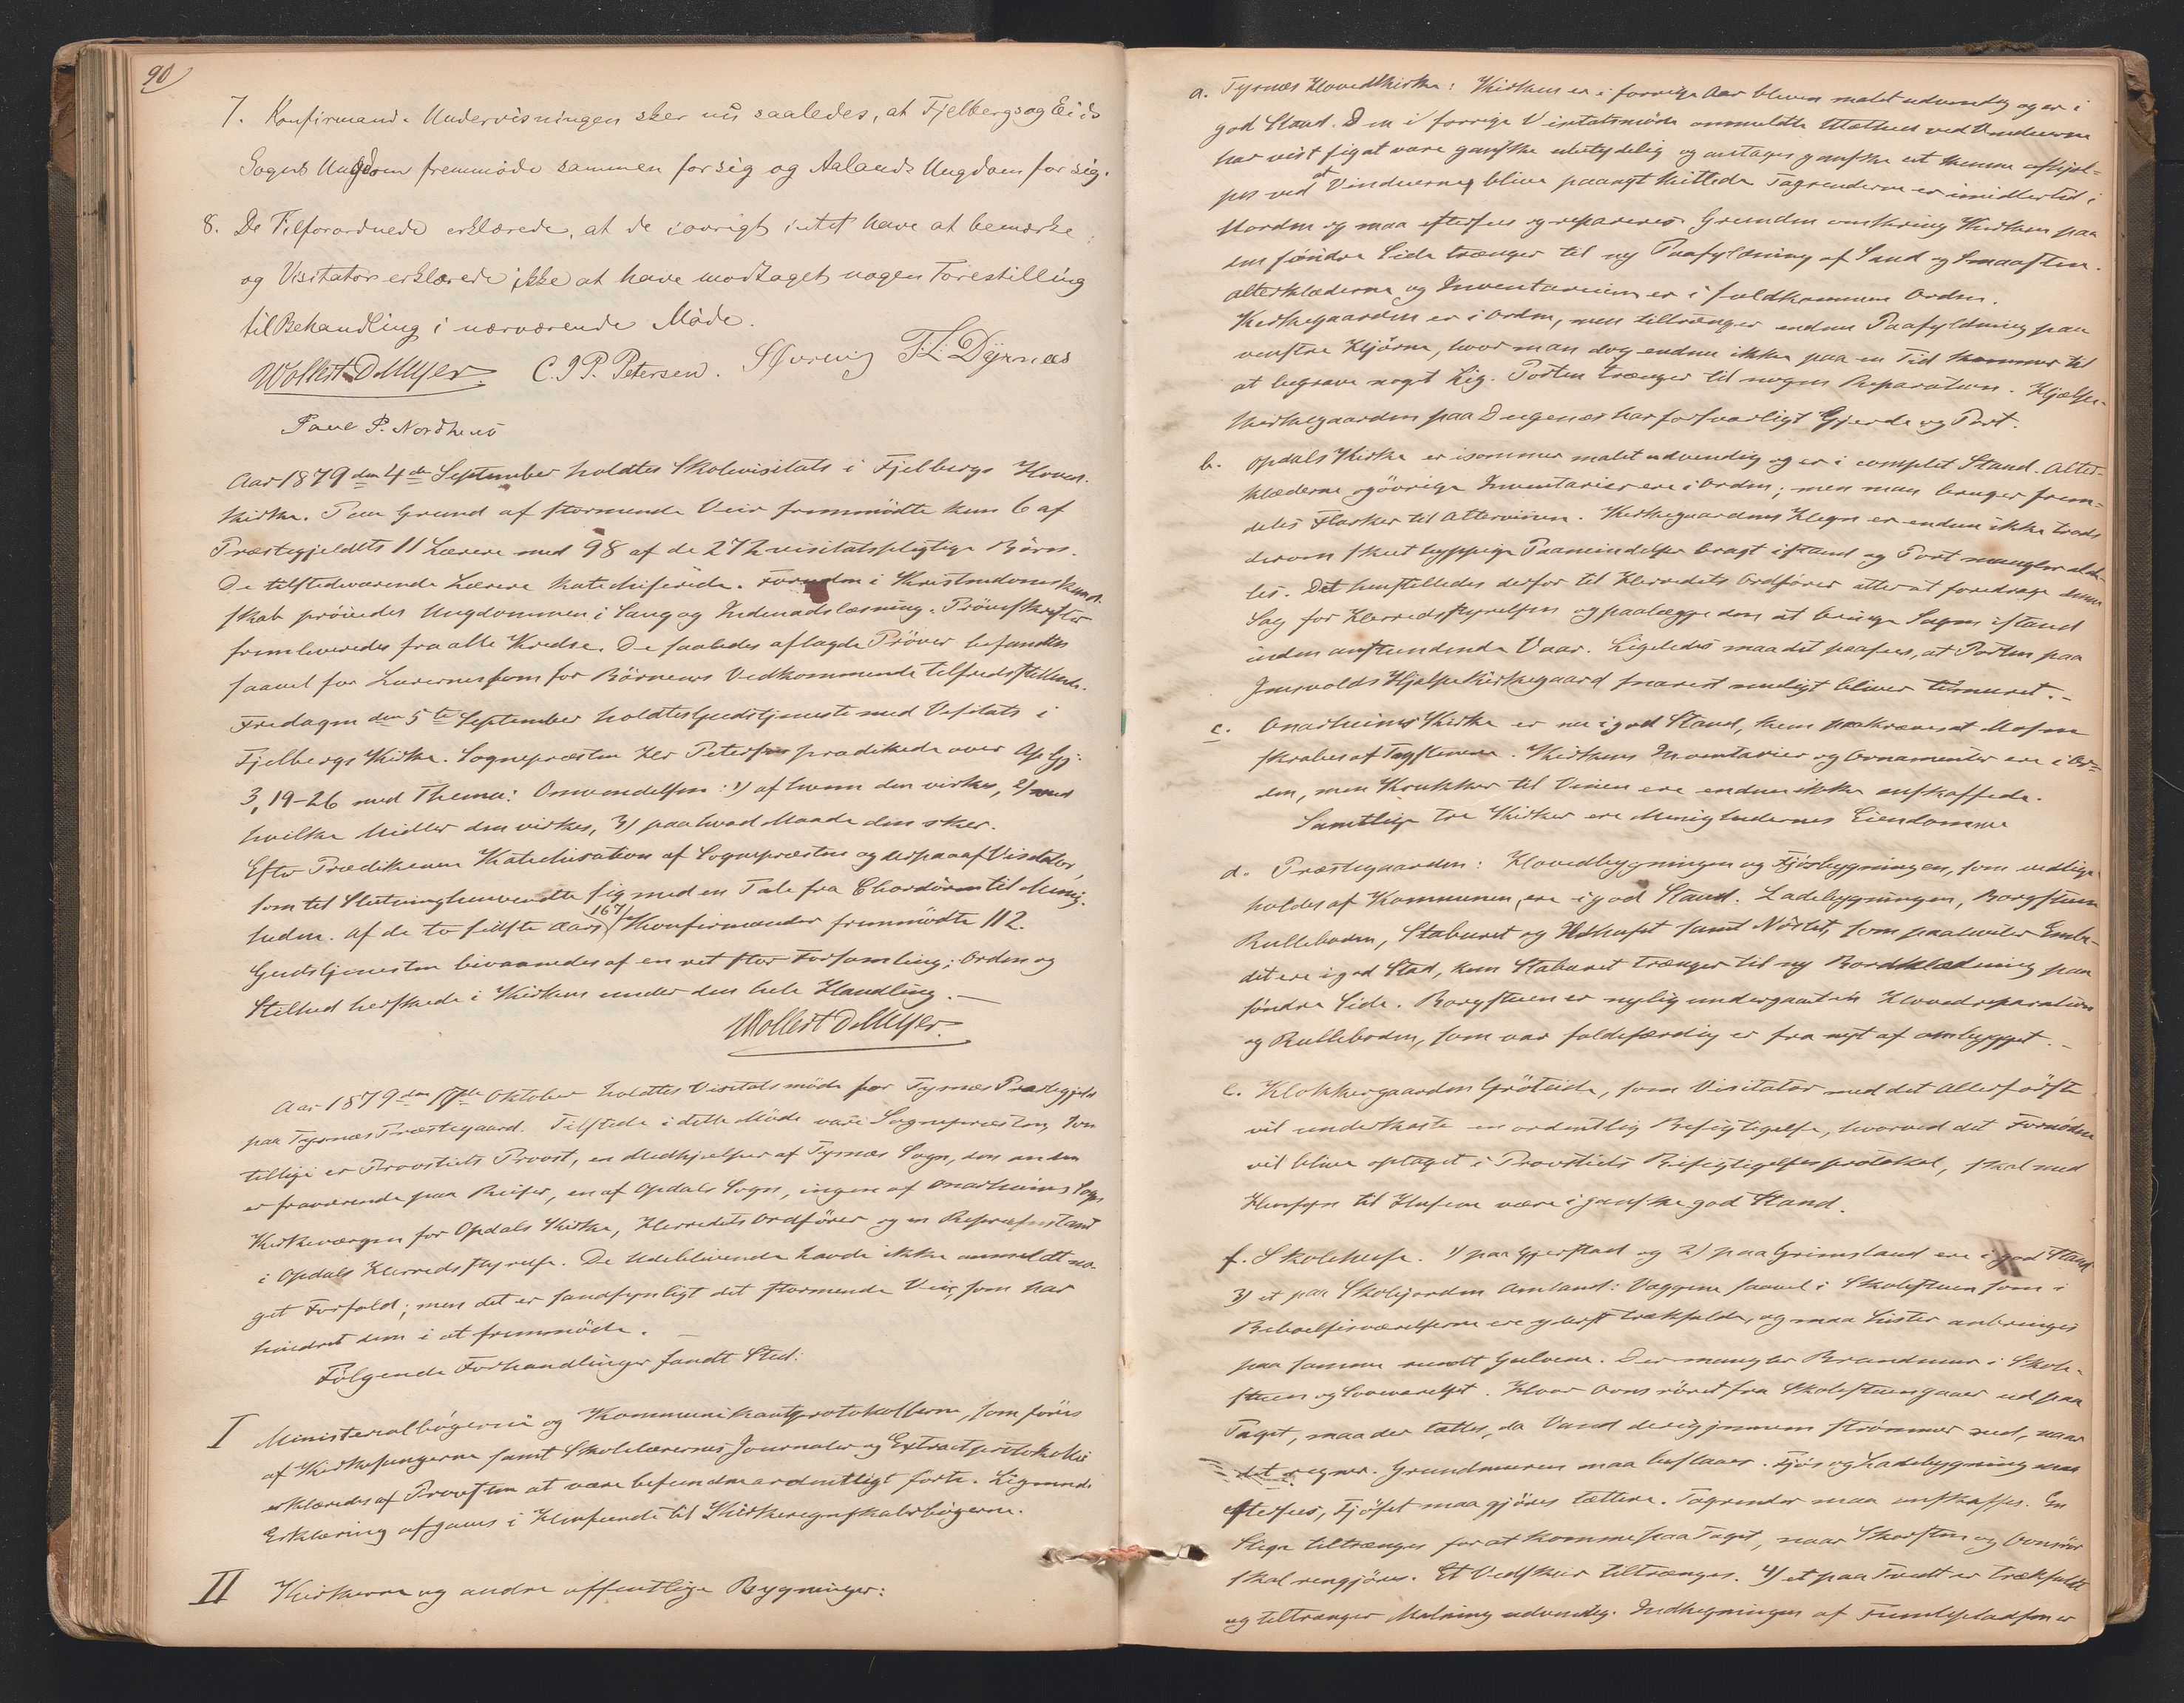 90
7. Konfirmand-Undervisningen sker nu saaledes, at Fjelbergs og Eids
Sogns Ungdom fremmøde sammen for sig og Aalands Ungdom for sig.
8. De Tilforordnede erklærede, at de iøvrigt intet have at bemærke;
og Visitator erklærede ikke at have modtaget nogen Forestilling
til Behandling i nærværende Møde.
Wollert D Meyer. C. J P. Petersen. T L Dyrnæs
Povel P. Nordhuus
Aar 1879 den 4de September holdtes Skolevisitats i Fjelbergs Hoved-
kirke. Paa Grund af stormende Veir fremmødte kun 6 af
Præstegjeldets 11 Lærere med 98 af de 272 visitatspligtige Børn.
De tilstedeværende Lærere katechiserede. Foruden i Kristendomskund-
skab prøvedes Ungdommen i Sang og Indenadslæsning. Prøveskrifter
fremleveredes fra alle Kredse. De saaledes aflagde Prøver befandtes
saavel for Lærernes som for Børnenes Vedkommende tilfredsstillende.
Fredagen den 5te September holdtes Gudstjeneste med Visitats i
Fjelbergs Kirke. Sognepræsten Hr Petersen prædikede over Ap. Gj:
3, 19-26 med Thema: Omvendelsen: 1) af hvem den virkes, 2) ved
hvilke Midler den virkes, 3) paa hvad Maade den sker.
Efter Prædikenen Katechisation af Sognepræsten og derpaa af Visitator,
som til Slutning henvendte sig med en Tale fra Chordøren til Menig-
heden. Af de to sidste Aars 167 Konfirmander fremmødte 112.
Gudstjenesten bivaanedes af en ret stor Forsamling; Orden og
Stilhed herskede i Kirken under den hele Handling. —
Wollert D Meyer.
Aar 1879 den Oktober holdtes Visitatsmøde for Tysnæs Præstegjeld
paa Tysnæs Præstegaard. Tilstede i dette Møde vare Sognepræsten, som
tillige er Provstiets Provst, en Medhjælper af Tysnæs Sogn, den anden
er fraværende paa Reise, en af Opdals Sogn, ingen af Onarheims Sogn,
Kirkeværgen for Opdals Kirke, Herredets Ordfører og en Repræsentant
i Opdals Herredsstyrelse. De Udeblivende havde ikke anmeldt no-
get Forfald; men det er sandsynligt det stormende Veir, som har
hindret dem i at fremmøde. —
Følgende Forhandlinger fandt Sted:
I Ministerialbøgerne og Kommunikantprotokollerne, som føres
af Kirkesangerne samt Skolelærernes Journaler og Extractprotokoller
erklæredes af Provsten at være befundne ordentligt førte. Lignende
Erklæring afgaves i Henseende til Kirkeregnskabsbøgerne.
II Kirkerne og andre offentlige Bygninger:
a. Tysnæs Hovedkirke: Kirken er i forrige Aar bleven malet udvendig og er i
god Stand. Den i forrige Visitatsmøde anmeldte Utæthed ved Vinduerne
har vist sig at være ganske ubetydelig og antages ganske at kunne afhjæl-
pes ved at Vinduerne blive paanyt kittede. Tagrenderne er imidlertid i
Uorden og maa eftersees og repareres. Grunden omkring Kirken paa
den søndre Side trænger til ny Paafyldning af Sand og Smaasten.
Alterklæderne og Inventarium er i fuldkommen Orden.
Kirkegaarden er i Orden, men tiltrænger endnu Paafyldning paa
venstre Hjørne, hvor man dog endnu ikke paa en Tid kommer til
at begrave noget Lig. Porten trænger til nogen Reparation. Hjælpe-
kirkegaarden paa Dugenæs har forsvarligt Gjerde og Port.
b. Opdals Kirke er isommer malet udvendig og er i complet Stand. Alter-
klæderne og øvrige Inventarier ere i Orden; men man bruger frem-
deles Flasker til Altervinen. Kirkegaardens Hegn er endnu ikke trods
derom skeet hyppige Paamindelser bragt istand og Port mangler alde-
les. Det henstilledes derfor til Herredets Ordfører atter at foredrage denne
Sag for Herredsstyrelsen og paalægge den at bringe Sagen istand
inden anstundende Vaar. Ligeledes maa det paasees, at Porten paa
Hjælpekirkegaard snarest muligt bliver . —
c. Onarheims Kirke er nu i god Stand, kun paakræves at Mosen
skrabes af Tagstenene. Kirkens Inventarier og Ornamenter ere i Or-
den, men Krukker til Vinen ere endnu ikke anskaffede.
Samtlige tre Kirker ere Menighedernes Eiendomme
d. Præstegaarden: Hovedbygningen og Fjøsbygningen, som vedlige-
holdes af Kommunen, ere i god Stand. Ladebygningen, Borgstuen
Rulleboden, Staburet og Ildhuset samt Nøstet, som paahviler Embe-
det ere i god Stad, kun Staburet trænger til ny Bordklædning paa
søndre Side. Borgstuen er nylig undergaaet en Hovedreparation
og Rulleboden, som var faldefærdig er fra nyt af ombygget. —
e. Klokkergaarden Gröteide, som Visitator med det Allerførste
vil underkaste en ordentlig Besigtigelse, hvorved det Fornødne
vil blive optaget i Provstiets Besigtigelsesprotokol, skal med
Hensyn til Husene være i ganske god Stand.
f. Skolehuse. 1) paa Gjerstad og 2) paa Grimsland ere i god Stand
3) et paa Skolejorden Amland: Væggene saavel i Skolestuen som i
Beboelsesværelserne ere yderst trækfulde, og maa Lister anbringes
paa samme rundt Gulvene. Der mangler Brandmur i Skole-
stuen og Soveværelset. Hvor Ovnsrøret fra Skolestuen gaaer ud paa
Taget, maa der tættes, da Vand derigjennem strømmer ned, naar
det regner. Grundmuren maa beslaaes. Fjøs og Ladebygning maa
eftersees, Fjøset maa gjøres tættere. Tagrender maa anskaffes. En
Stige tiltrænges for at komme paa Taget, naar Skorsten og Ovnsrør
skal rengjøres. Et Vedskur tiltrænges. 4) et paa Tvedt er trækfuldt
og tiltrænger Maling udvendig. Indhegningen af er